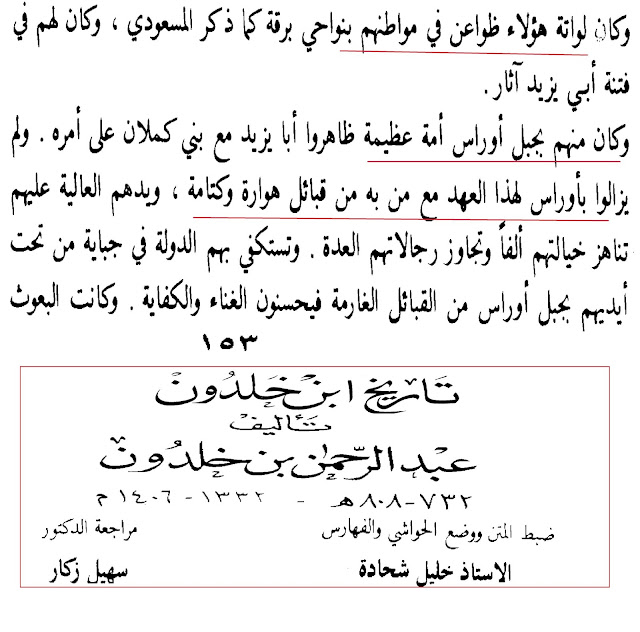 وكان لواتة هؤلاء ظواعن في مواطنهم بنواحي برقة كما ذكر المسعودي ، وكان لهم في
فتنة أبي يزيد آثار .
وكان منهم بجبل أوراس أمة عظيمة ظاهروا أبا يزيد مع بني كملان على أمره . ولم
يزالوا بأوراس لهذا العهد مع من به من قبائل هوارة وكتامة ، ويدهم العالية عليهم
تناهز خيالتهم ألفاً وتجاوز رجالاتهم العدة . وتستكفي بهم الدولة في جباية من تحت
أيديهم بجبل أوراس من القبائل الغارمة فيحسنون الغناء والكفاية . وكانت البعوث
١٥٣
تاريخ ابن خلدون
تأليف
عبد الرحمن بن خلدون
٧٣٢-٨٠٨ هـ - ١٣٣٢-١٤٠٦ م
ضبط المتن ووضع الحواشي والفهارس مراجعة الدكتور
الاستاذ خليل شحادة سهيل زكار